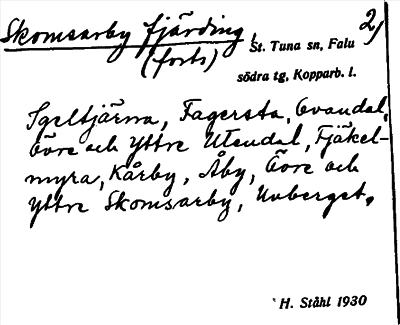 Skomsarby fjärding, 2)
(forts) St. Tuna sn, Falu
södra tg, Kopparb. l.
Igeltjärna, Fagersta, Ovandal,
Övre och Yttre Utendal, Fjäkel-
myra, Kårby, Åby, Övre och
Yttre Skomsarby, Uvberget.
H. Ståhl 1930